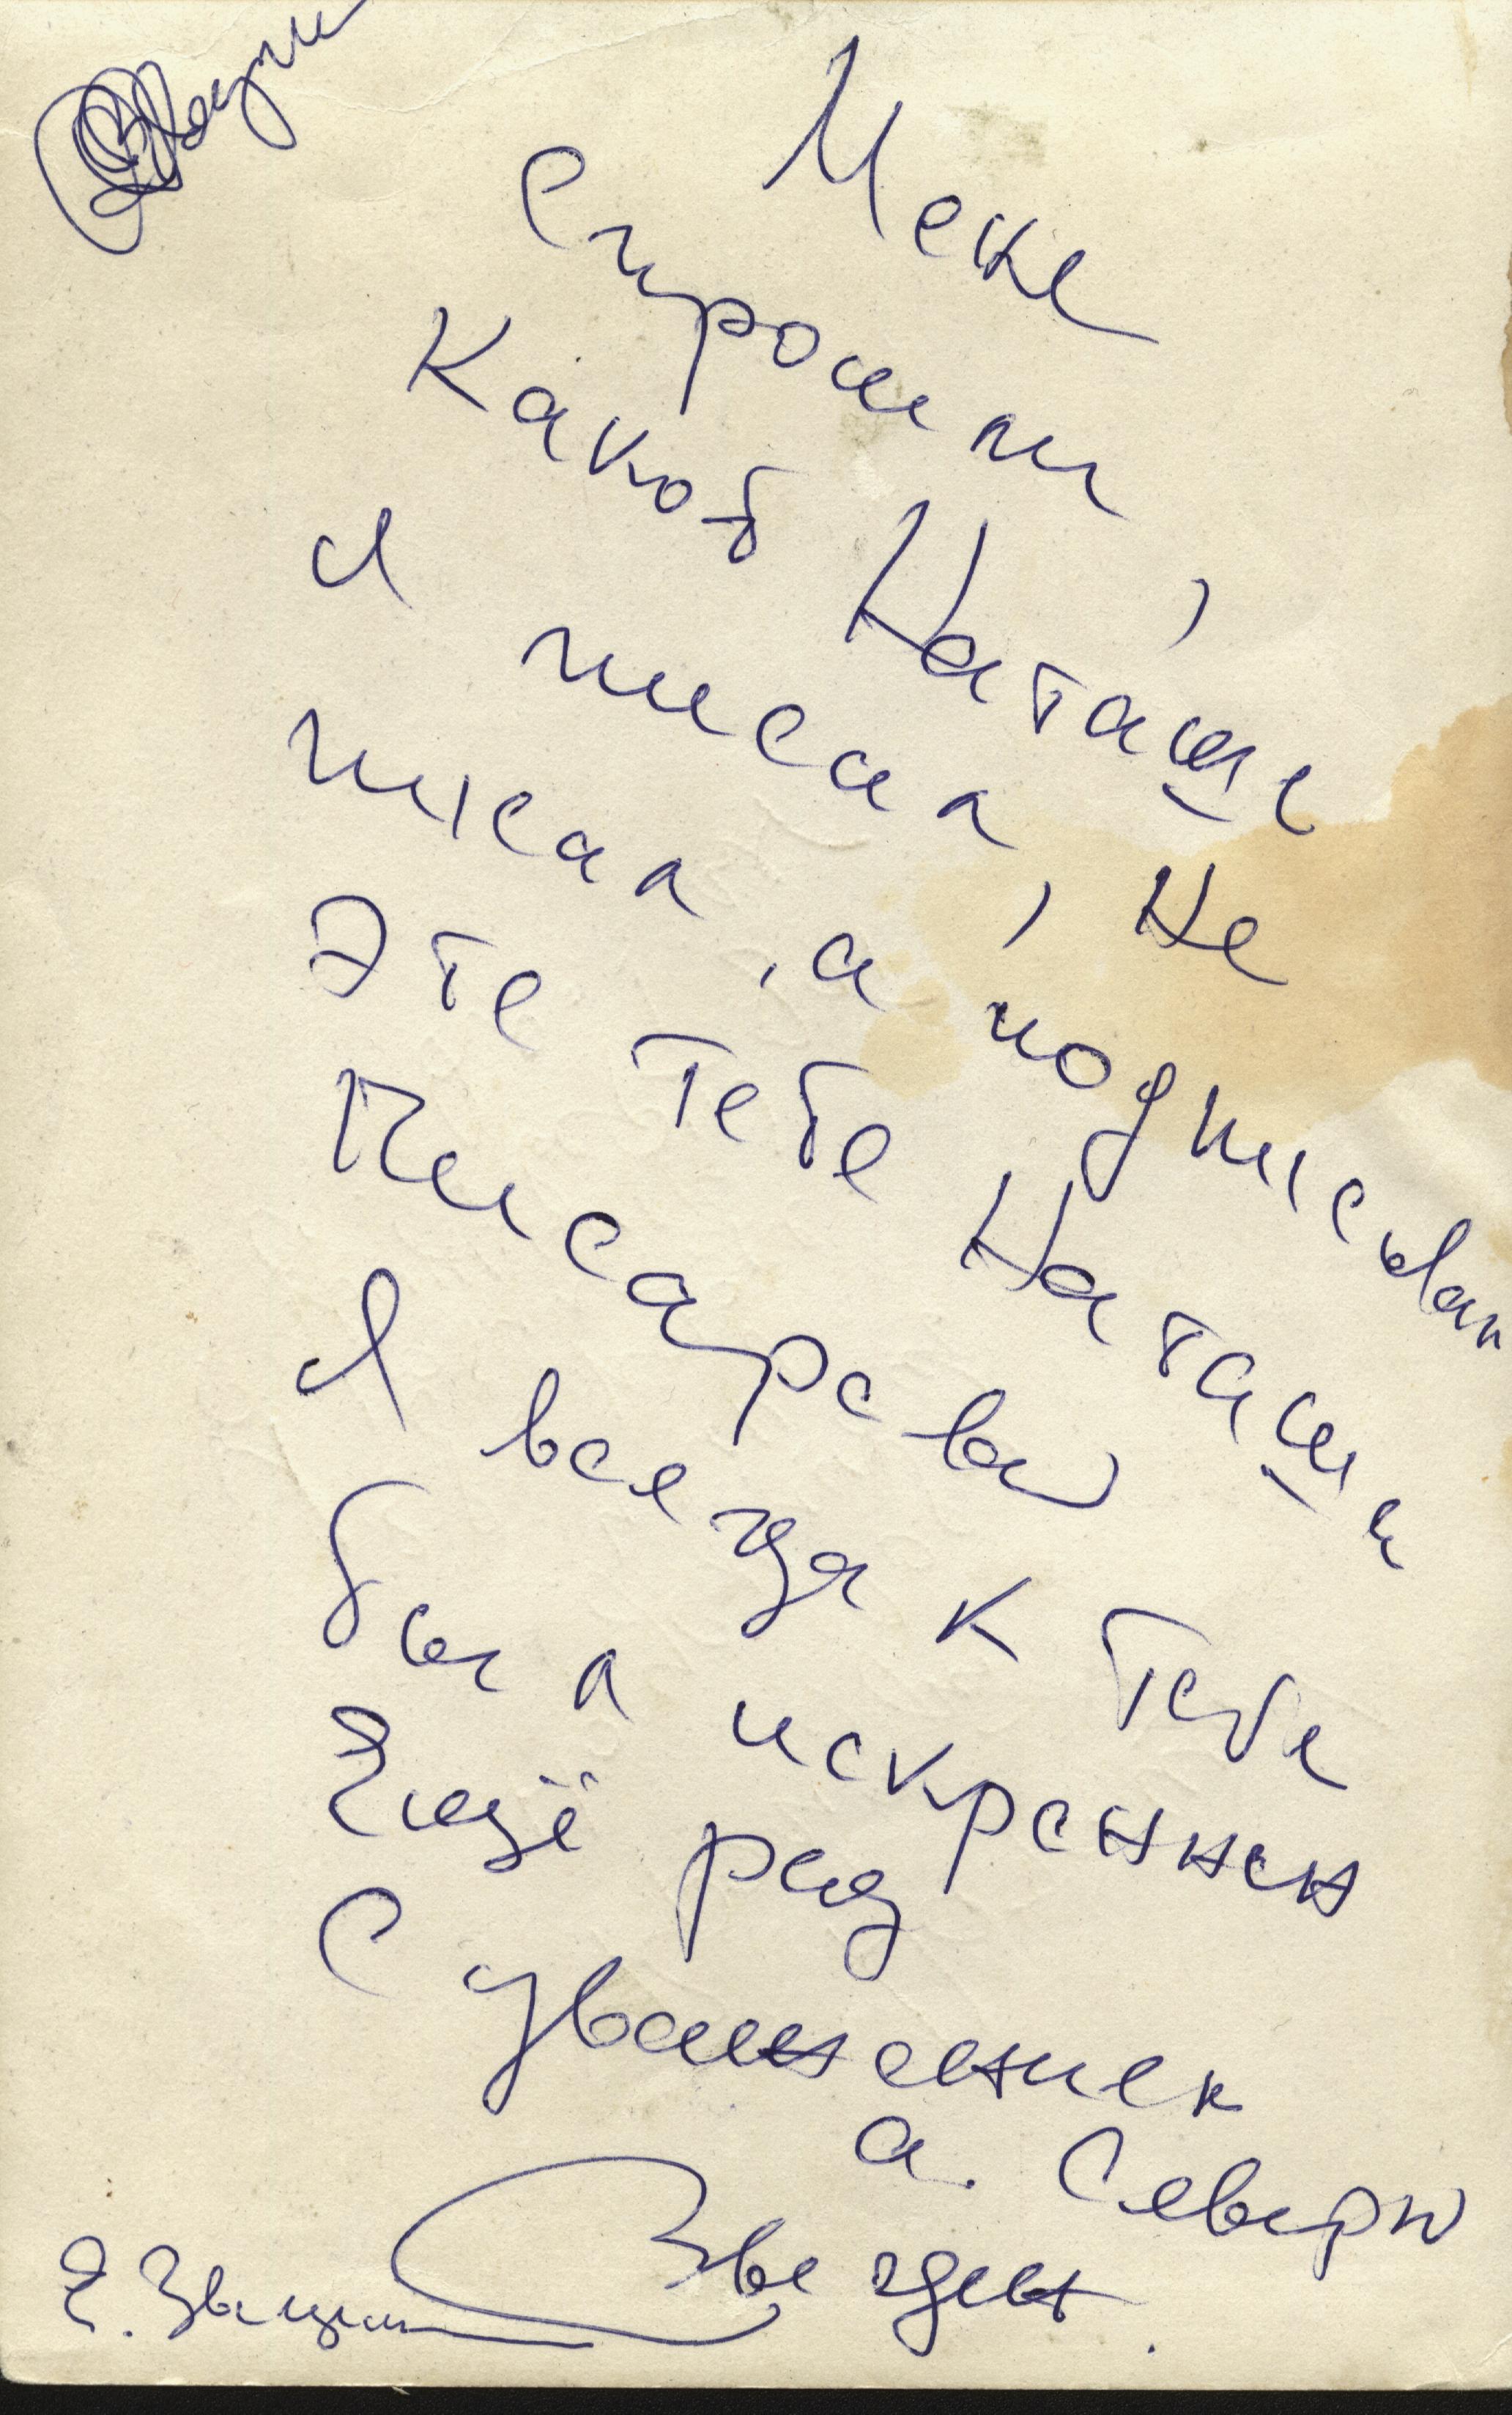 Меня
Спросили,
какой Наташе
я писал, Не
писал, а подписывал
Это тебе Наташе
Писаревой
Я всегда к тебе
был искренен
Ещё раз
С уважением
а. Северн
Звездин.
Е. Звездин